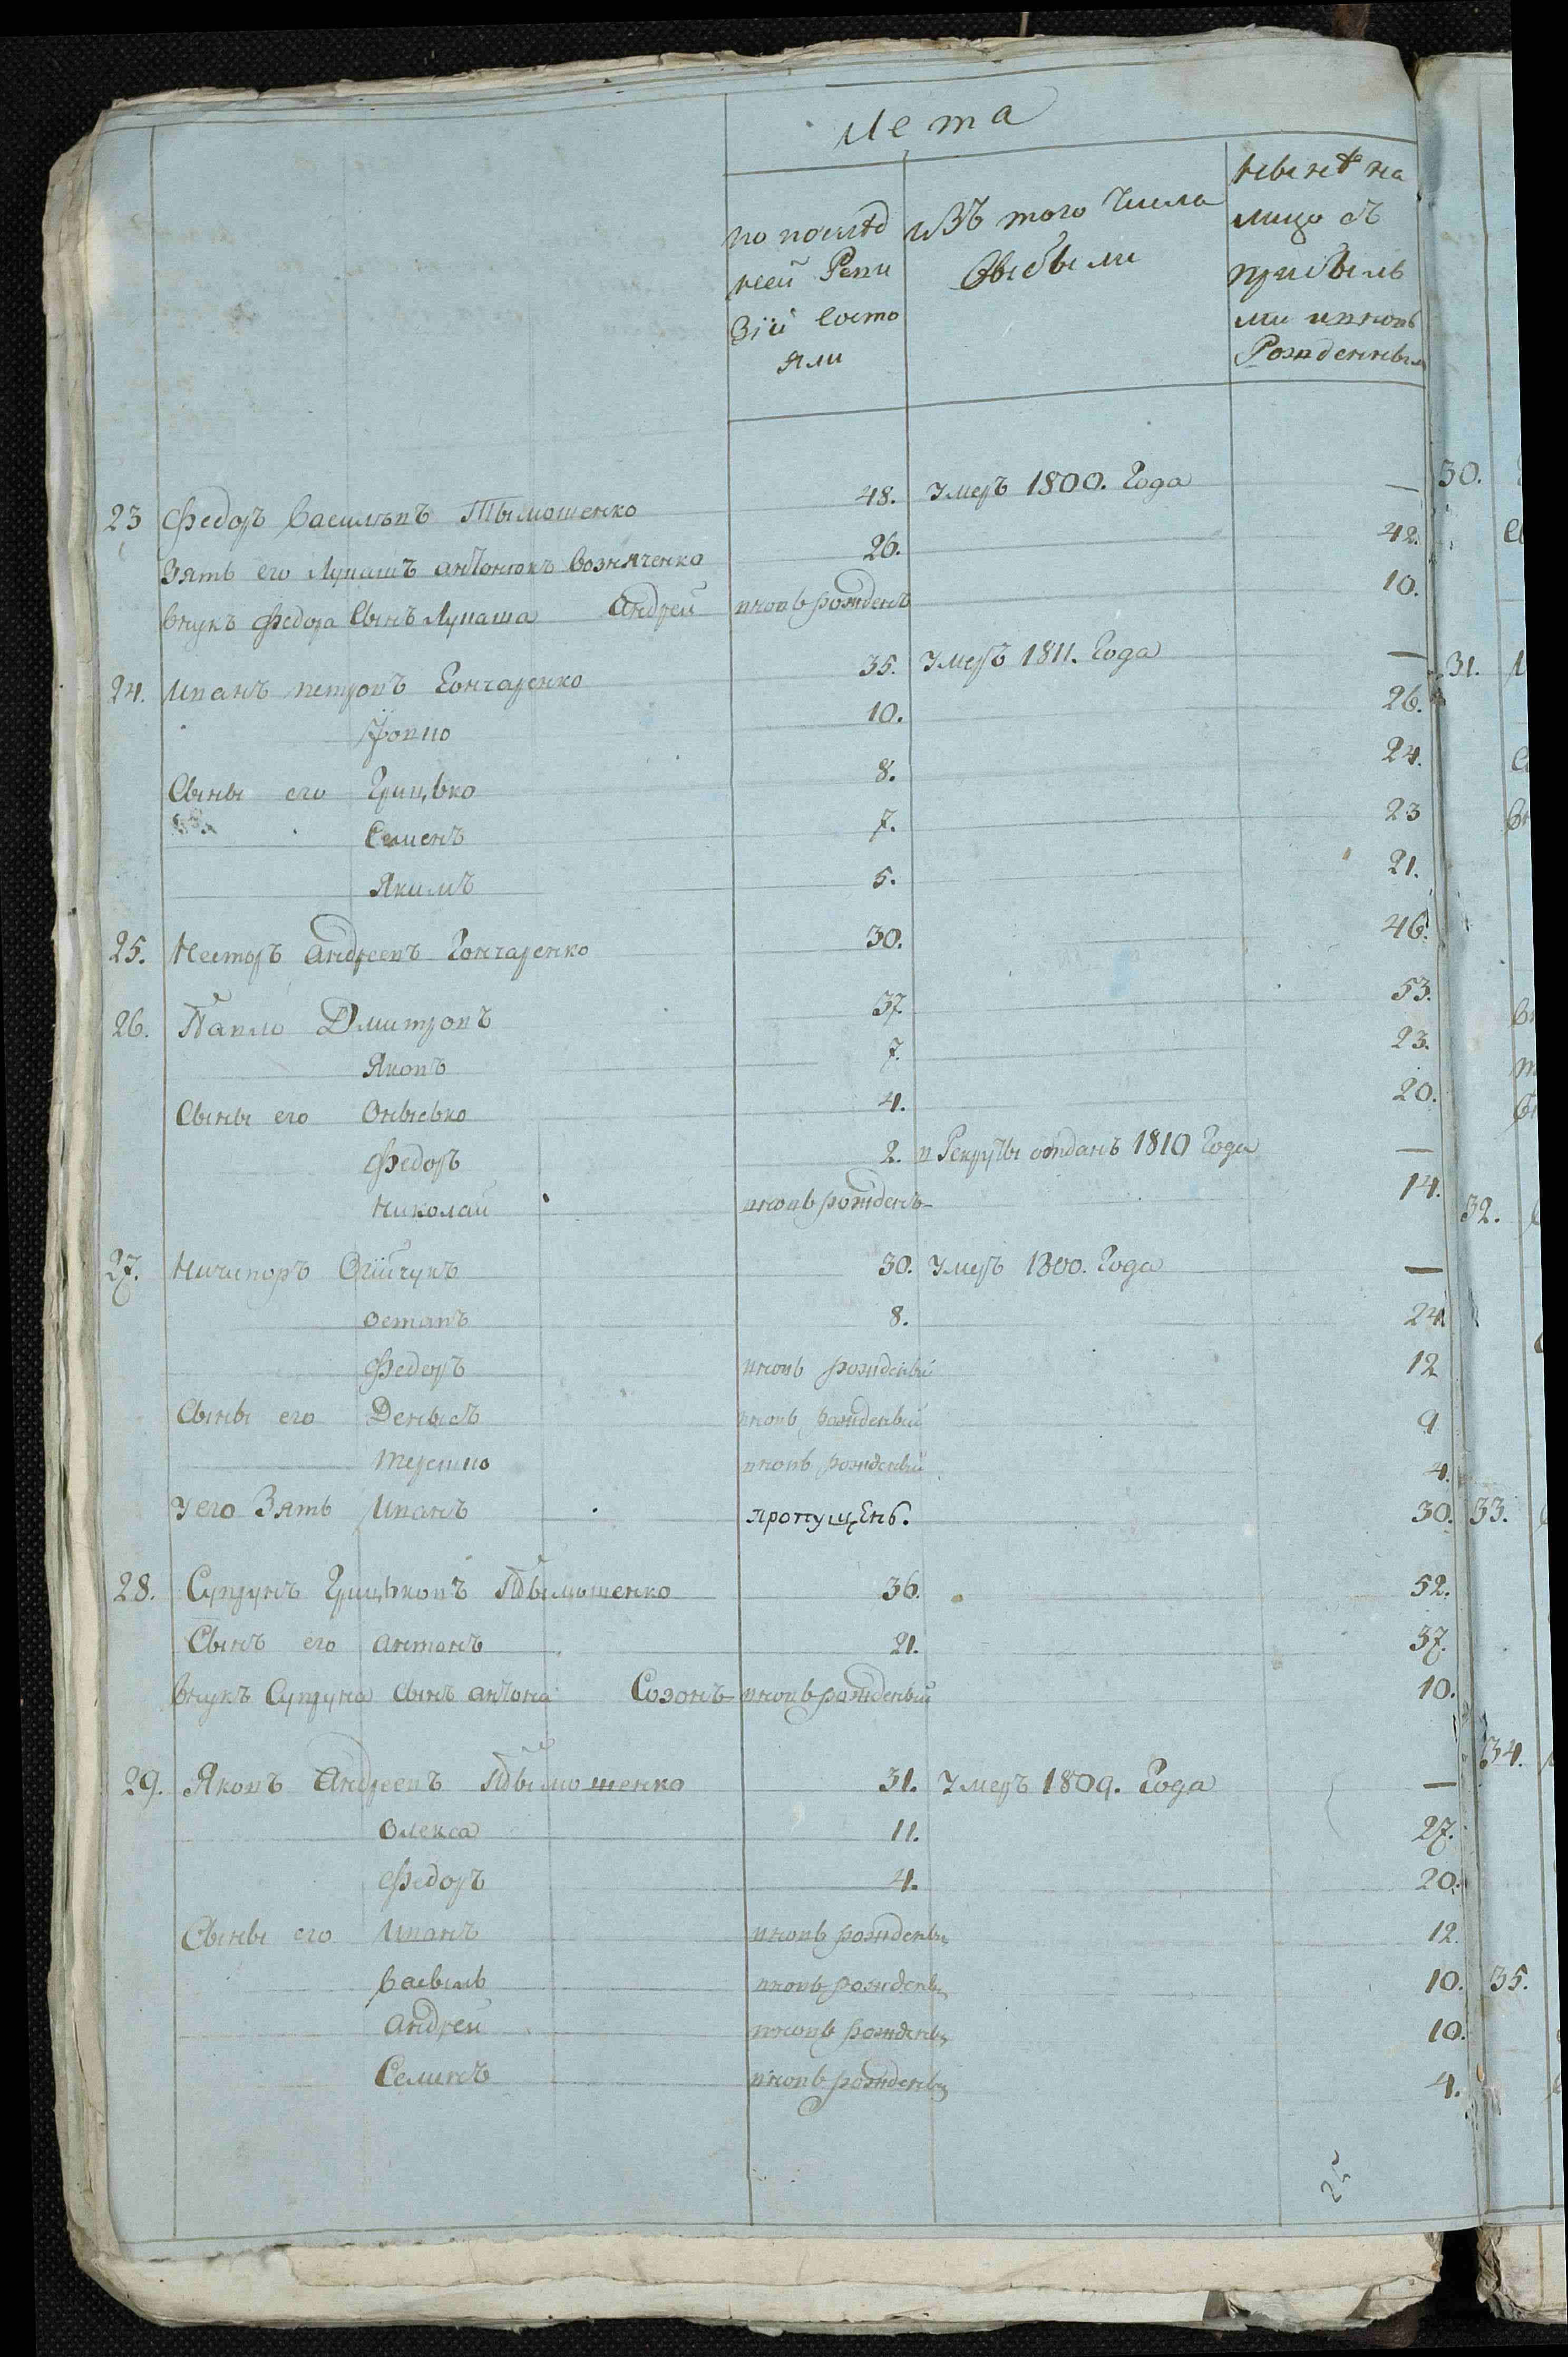 Лета
по послѣд
ней Реви
зіи Состо
яли
изъ того Числа
выбыли
нынѣ на
лицо съ
прибыль
ми и вновь
Рожденны
23 Федоръ Васильевъ Тымошенко 48. умеръ 1800. Года —
Зять его Лукашъ антонюкъ Возняченко 26. 42.
Внукъ Федора Сынъ Лукаша Андрей вновь рожденъ 10.
24. Иванъ петровъ Гончаренко 35. умеръ 1811. Года —
10. 26.
Сыны его Грицько 8. 24.
Семенъ 7. 23
Якимъ 5. 21.
25. Несторъ андреевъ Гончаренко 30. 46.
26. Павло Дмитровъ 37. 53.
Яковъ 7. 23.
Сыны его Онысько 4. 20.
Федоръ 2. в Рекруты отданъ 1810 Года —
Николай вновь рожденъ 14.
27. Ничипоръ 30. умеръ 1800. Года —
Остапъ 8. 24.
Федоръ вновь рожденый 12
Сыны его Денысъ вновь рожденый 9
Терешко вновь рожденый 4.
у его Зять Иванъ пропущенъ. 30.
28. Супрунъ Грицьковъ Тымошенко 36. 52.
Сынъ его антонъ 21. 37.
Внукъ Супруна сынъ антона Созонъ вновь рожденый 10.
29. Яковъ Андреевъ Тымошенко 31. умеръ 1809. Года —
Олекса 11. 27.
Федоръ 4. 20.
Сыны его Иванъ вновь рожденый 12.
Васыль вновь рожденый 10.
андрей вновь рожденый 10.
Семенъ вновь рожденый 4.
30.
31.
32.
33.
34.
35.